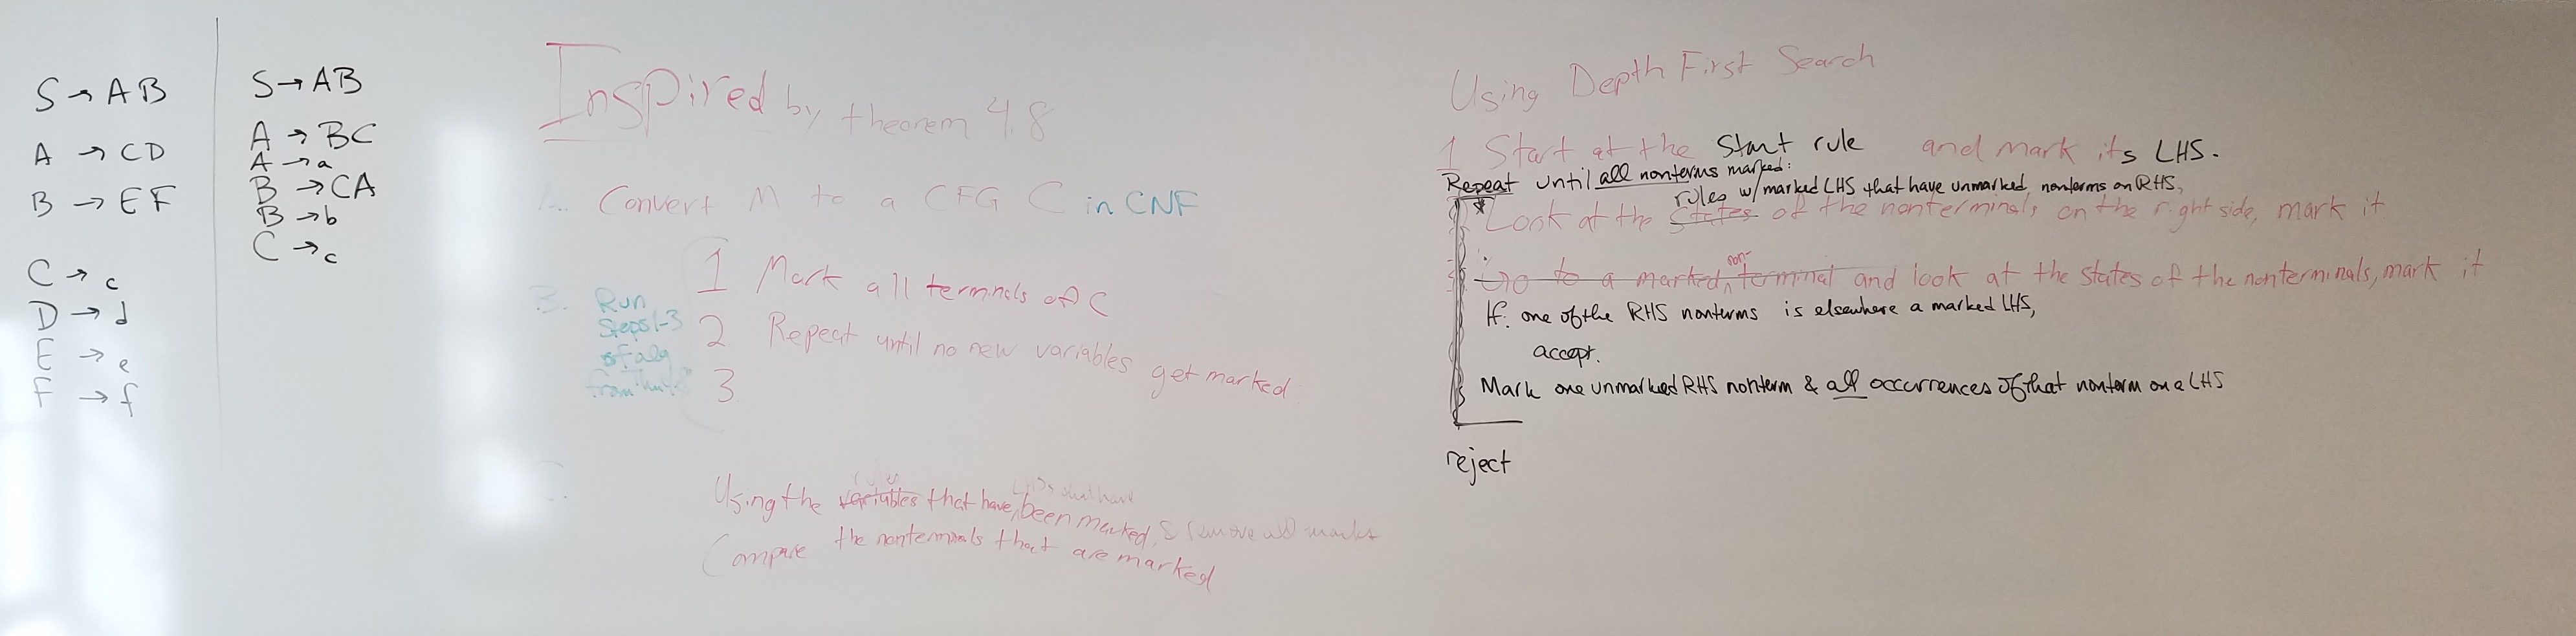 S → AB
A → CD
B → EF
C → c
D → d
E → e
F → f
S → AB
A → BC
A → a
B → CA
B → b
C → c
Inspired by theorem 4.8
A. Convert M to a CFG C in CNF
B. Run
Steps 1-3
of alg
from thm 4.8
1 Mark all terminals of C
2. Repeat until no new variables get marked
3
C.
rules LHSs that have
Using the variables that have been marked, & remove all marks
Compare the nonterminals that are marked
Using Depth First Search
1 Start at the Start rule and mark its LHS.
Repeat until all nonterms marked:
rules w/marked LHS that have unmarked nonterms on RHS,
Look at the states of the nonterminals on the right side, mark it
non-
Go to a marked, terminal and look at the states of the nonterminals, mark it
If: one of the RHS nonterms is elsewhere a marked LHS,
accept.
Mark one unmarked RHS nonterm & all occurrences of that nonterm on a LHS
reject